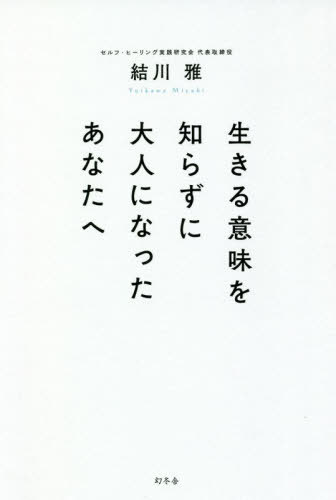 セルフ・ヒーリング実践研究会 代表取締役
結川 雅
Yuikawa Miyabi
生きる意味を
知らずに
大人になった
あなたへ
幻冬舎